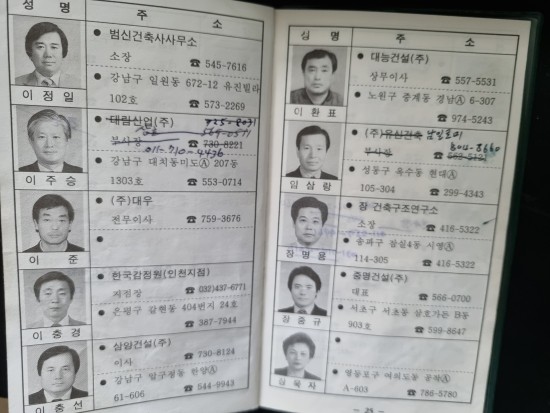 성 명 주 소
● 범신건축사사무소
소장 ☎ 545-7616
● 강남구 일원동 672-12 유진빌라
102호 ☎ 573-2269
이 정 일
● 대림산업(주) 725-8031
부사장 569-0511 ☎ 730-8221
011-710-4436
● 강남구 대치동미도Ⓐ 207동
1303호 ☎ 553-0714
이 주 승
● (주)대우
전무이사 ☎ 759-3676
●
이 준
● 한국감정원(인천지점)
지점장 ☎ 032)437-6771
● 은평구 갈현동 404번지 24호
☎ 387-7944
이 충 경
● 삼양건설(주)
이사 ☎ 730-8124
● 강남구 압구정동 한양Ⓐ
61-606 ☎ 544-9943
이 충 선
성 명 주 소
● 대능건설(주)
상무이사 ☎ 557-5531
● 노원구 중계동 경남Ⓐ 6-307
☎ 974-5243
이 환 표
● (주)유신건축
부사장 804-8660
● 성동구 옥수동 현대Ⓐ
105-304 ☎ 299-4343
임 삼 랑
● 장 건축구조연구소
소장 ☎ 416-5322
● 송파구 잠실4동 시영Ⓐ
114-305 ☎ 416-5322
장 명 용
● 중명건설(주)
대표 ☎ 566-0700
● 서초구 서초동 삼호가든 B동
903호 ☎ 599-8647
장 중 규
●
● 영등포구 여의도동 공작Ⓐ
A-603 ☎ 786-5780
— 25 —